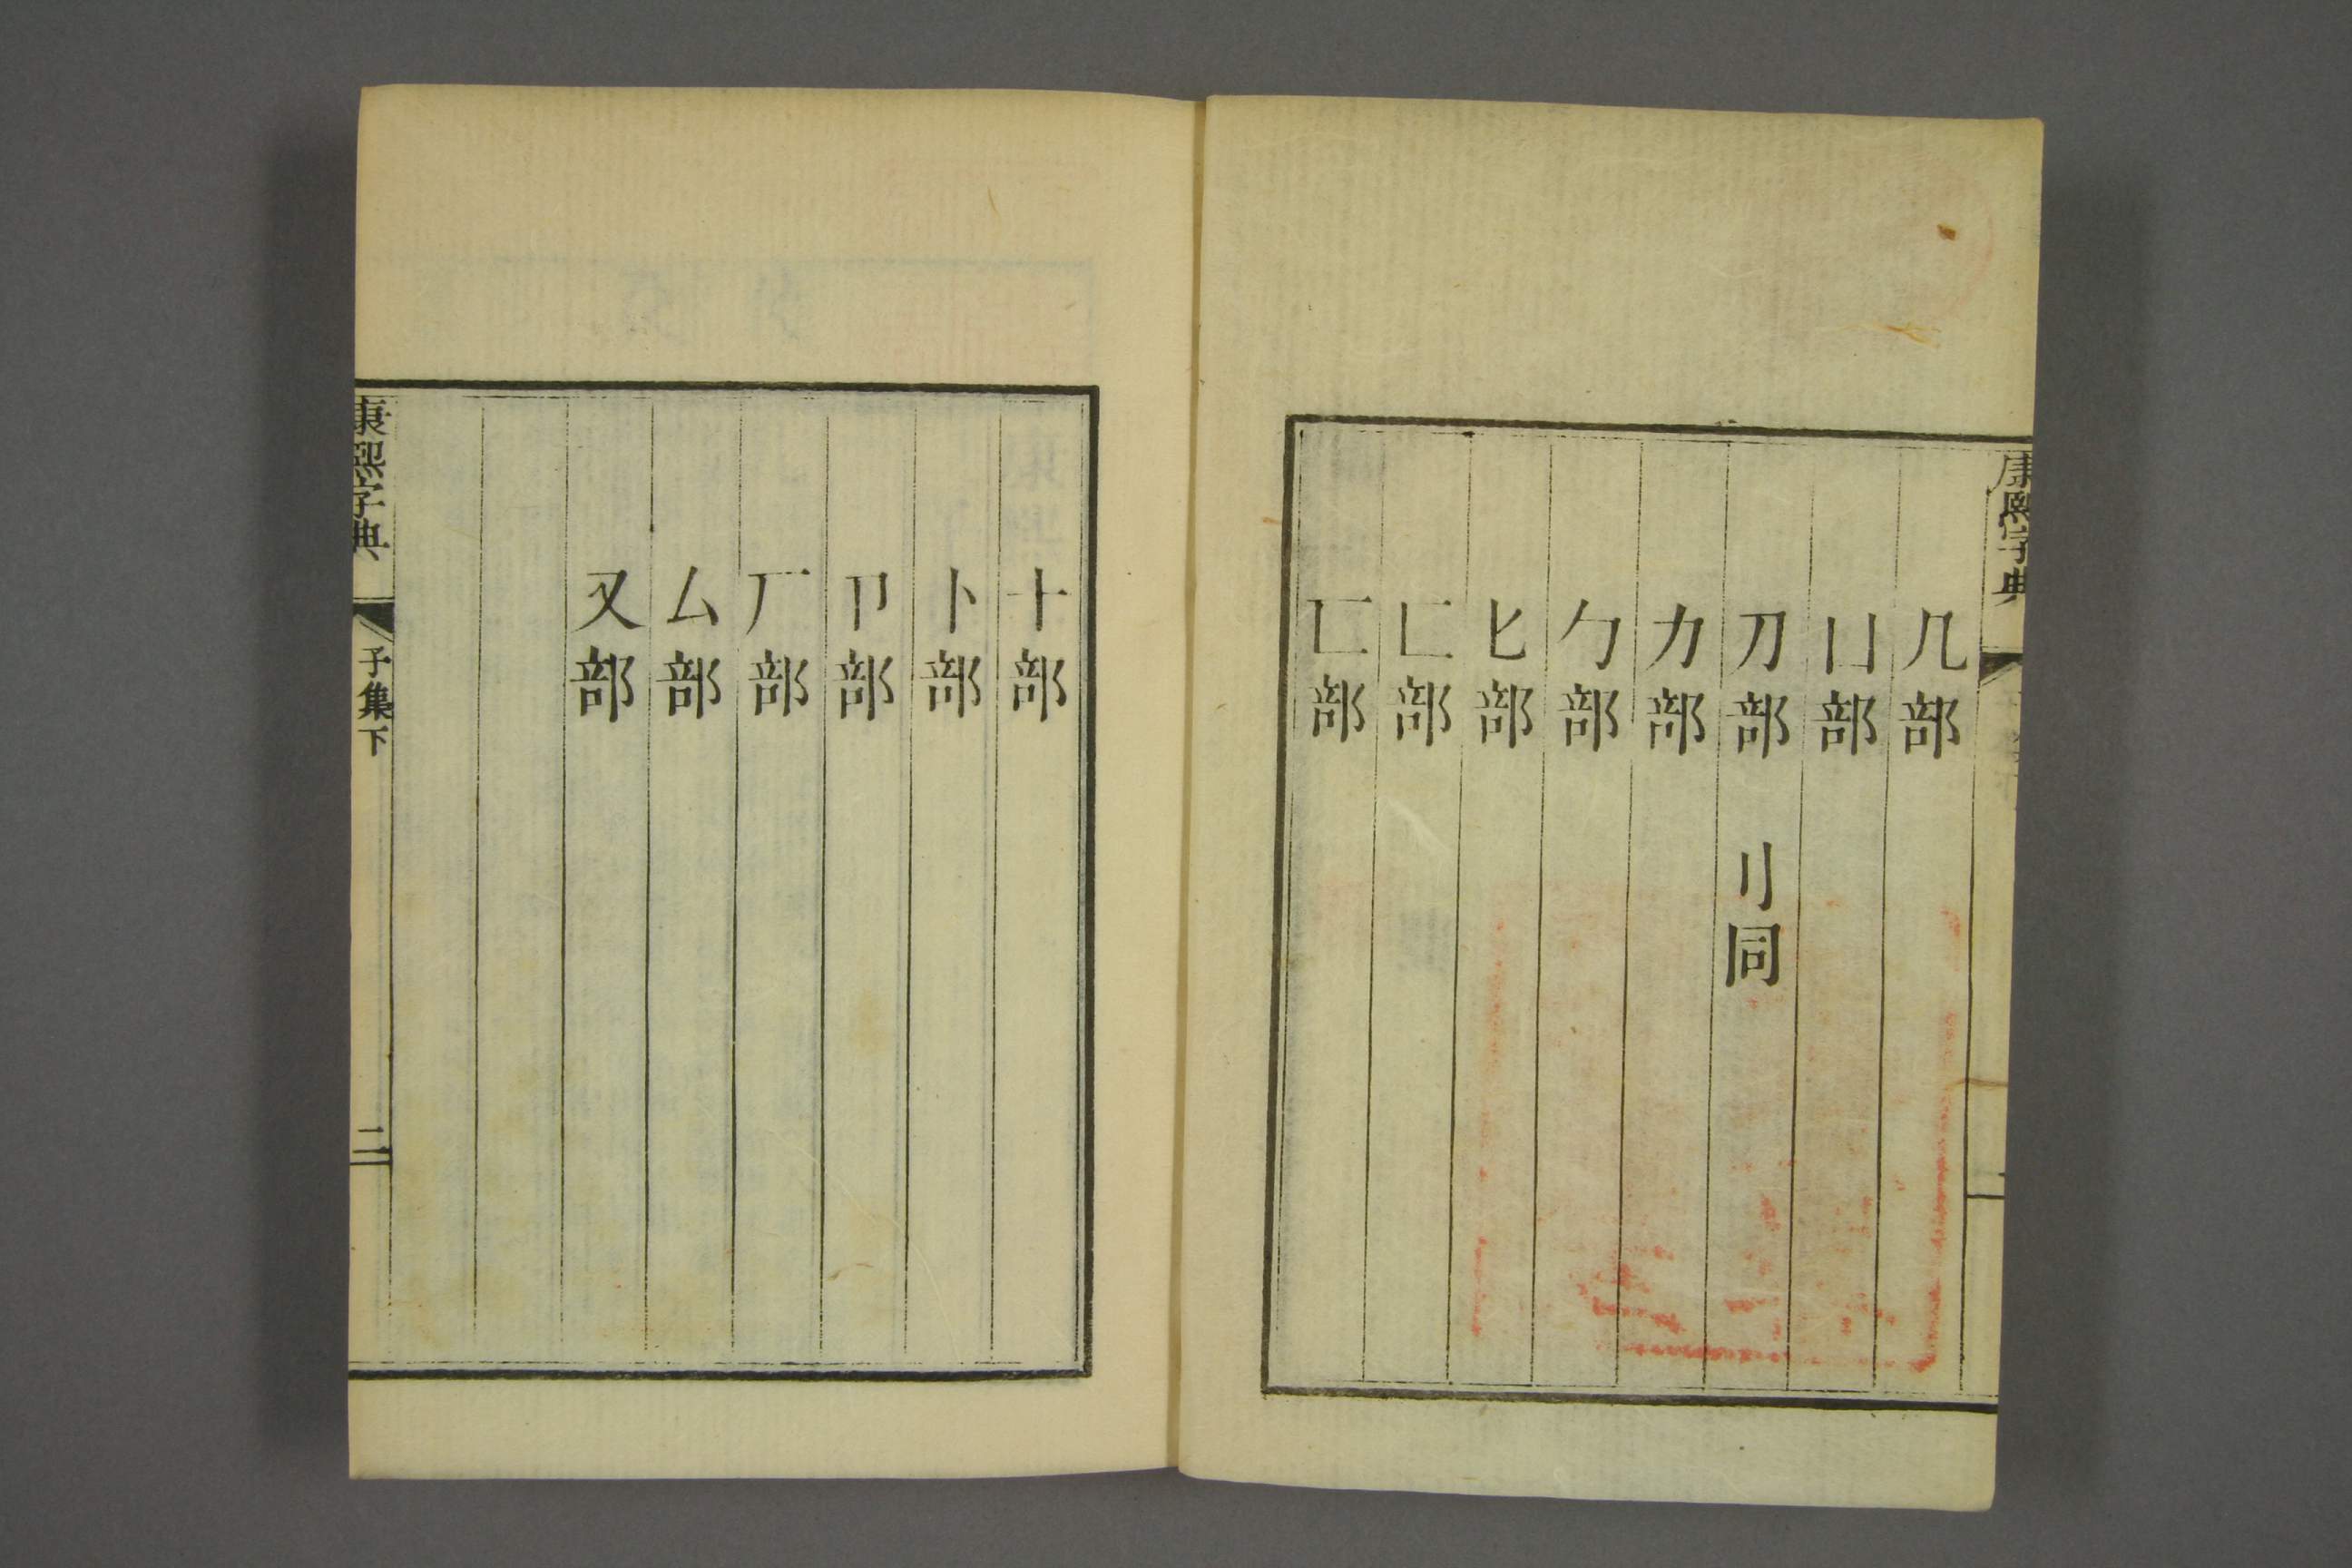 康熙字典
几部
凵部
刀部 刂同
力部
勹部
匕部
匚部
匸部
十部
卜部
卩部
厂部
厶部
又部
康熙字典 子集下 二